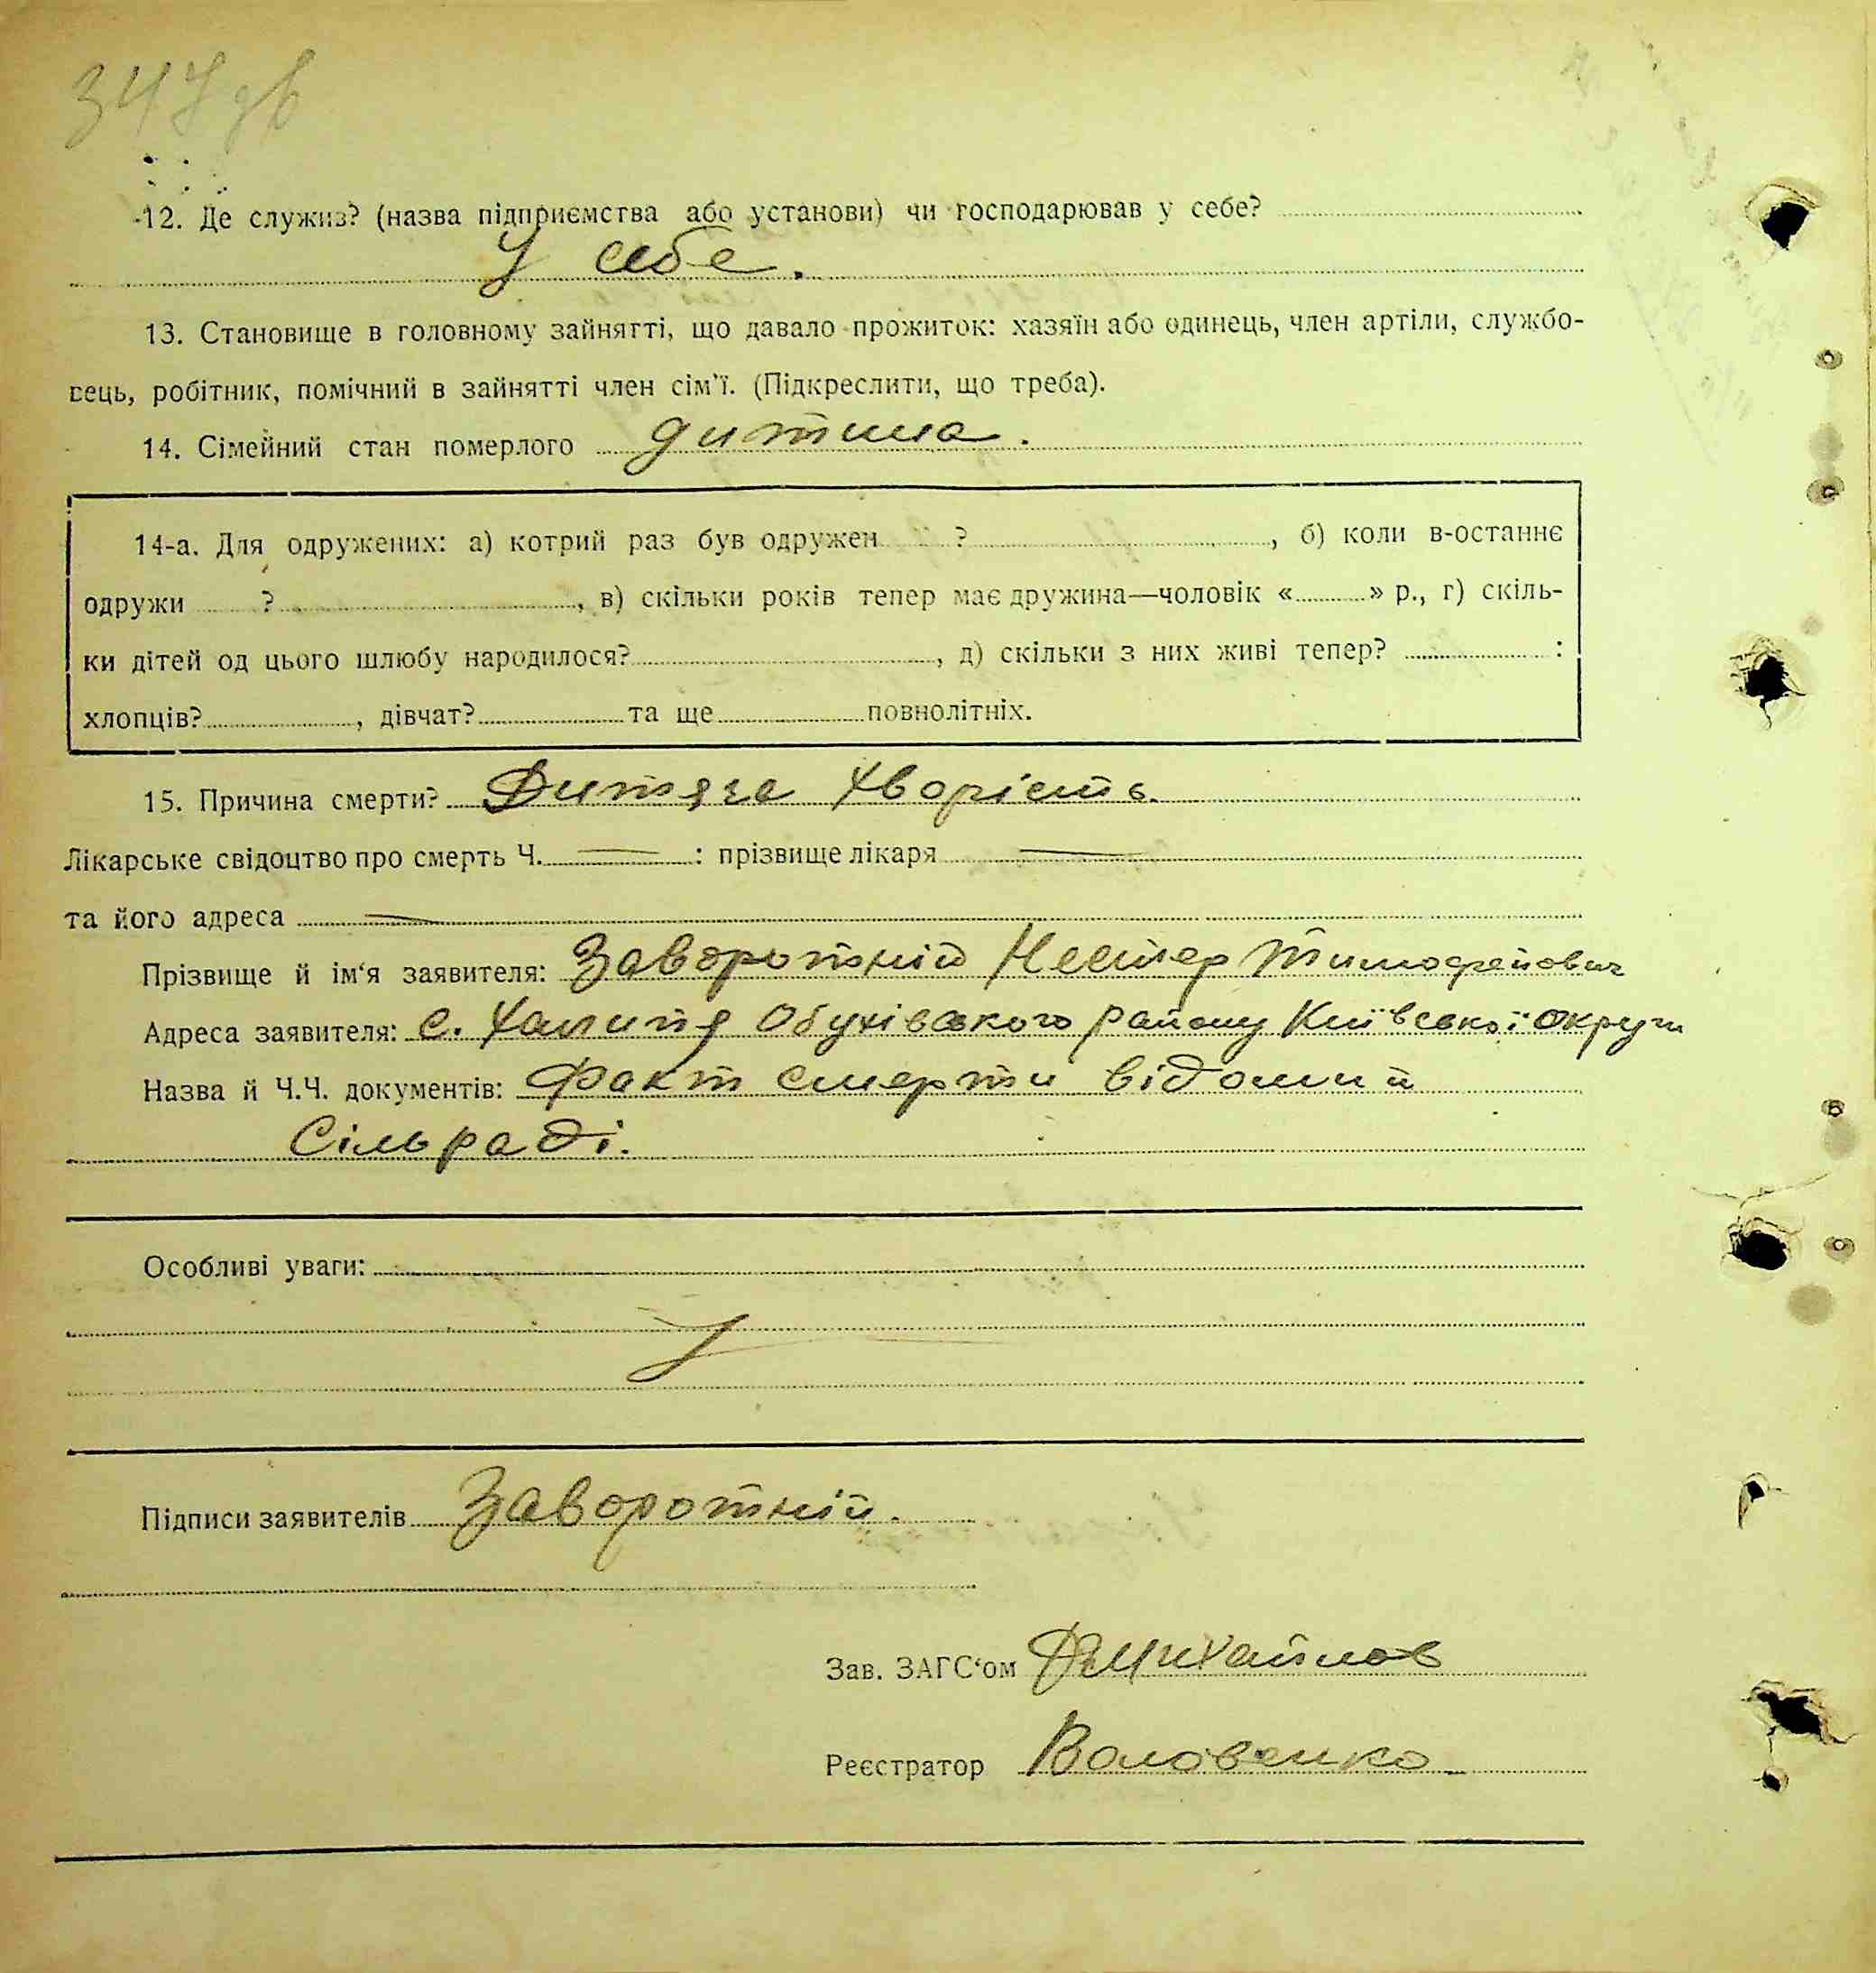 347 зв
12. Де служив? (назва підприємства або установи) чи господарював у себе?
У себе.
13. Становище в головному зайнятті, що давало прожиток: хазяїн або одинець, член артіли, службо-
вець, робітник, помічний в зайнятті член сім'ї. (Підкреслити, що треба).
14. Сімейний стан померлого дитина.
14-а. Для одружених: а) котрий раз був одружен ?, б) коли в-останнє
одружи ?, в) скільки років тепер має дружина—чоловік « » р., г) скіль-
ки дітей од цього шлюбу народилося?, д) скільки з них живі тепер? :
хлопців?, дівчат? та ще повнолітніх.
15. Причина смерти? Дитяча хворість.
Лікарське свідоцтво про смерть Ч. — : прізвище лікаря —
та його адреса —
Прізвище й ім'я заявителя: Заворотній Нестер Тимофейович
Адреса заявителя: с. Халипя Обухівського району Київської округи
Назва й Ч.Ч. документів: Факт смерти відомий
Сільраді.
Особливі уваги:
Підписи заявителів Заворотній.
Зав. ЗАГС'ом Михайлов
Реєстратор Воловенко